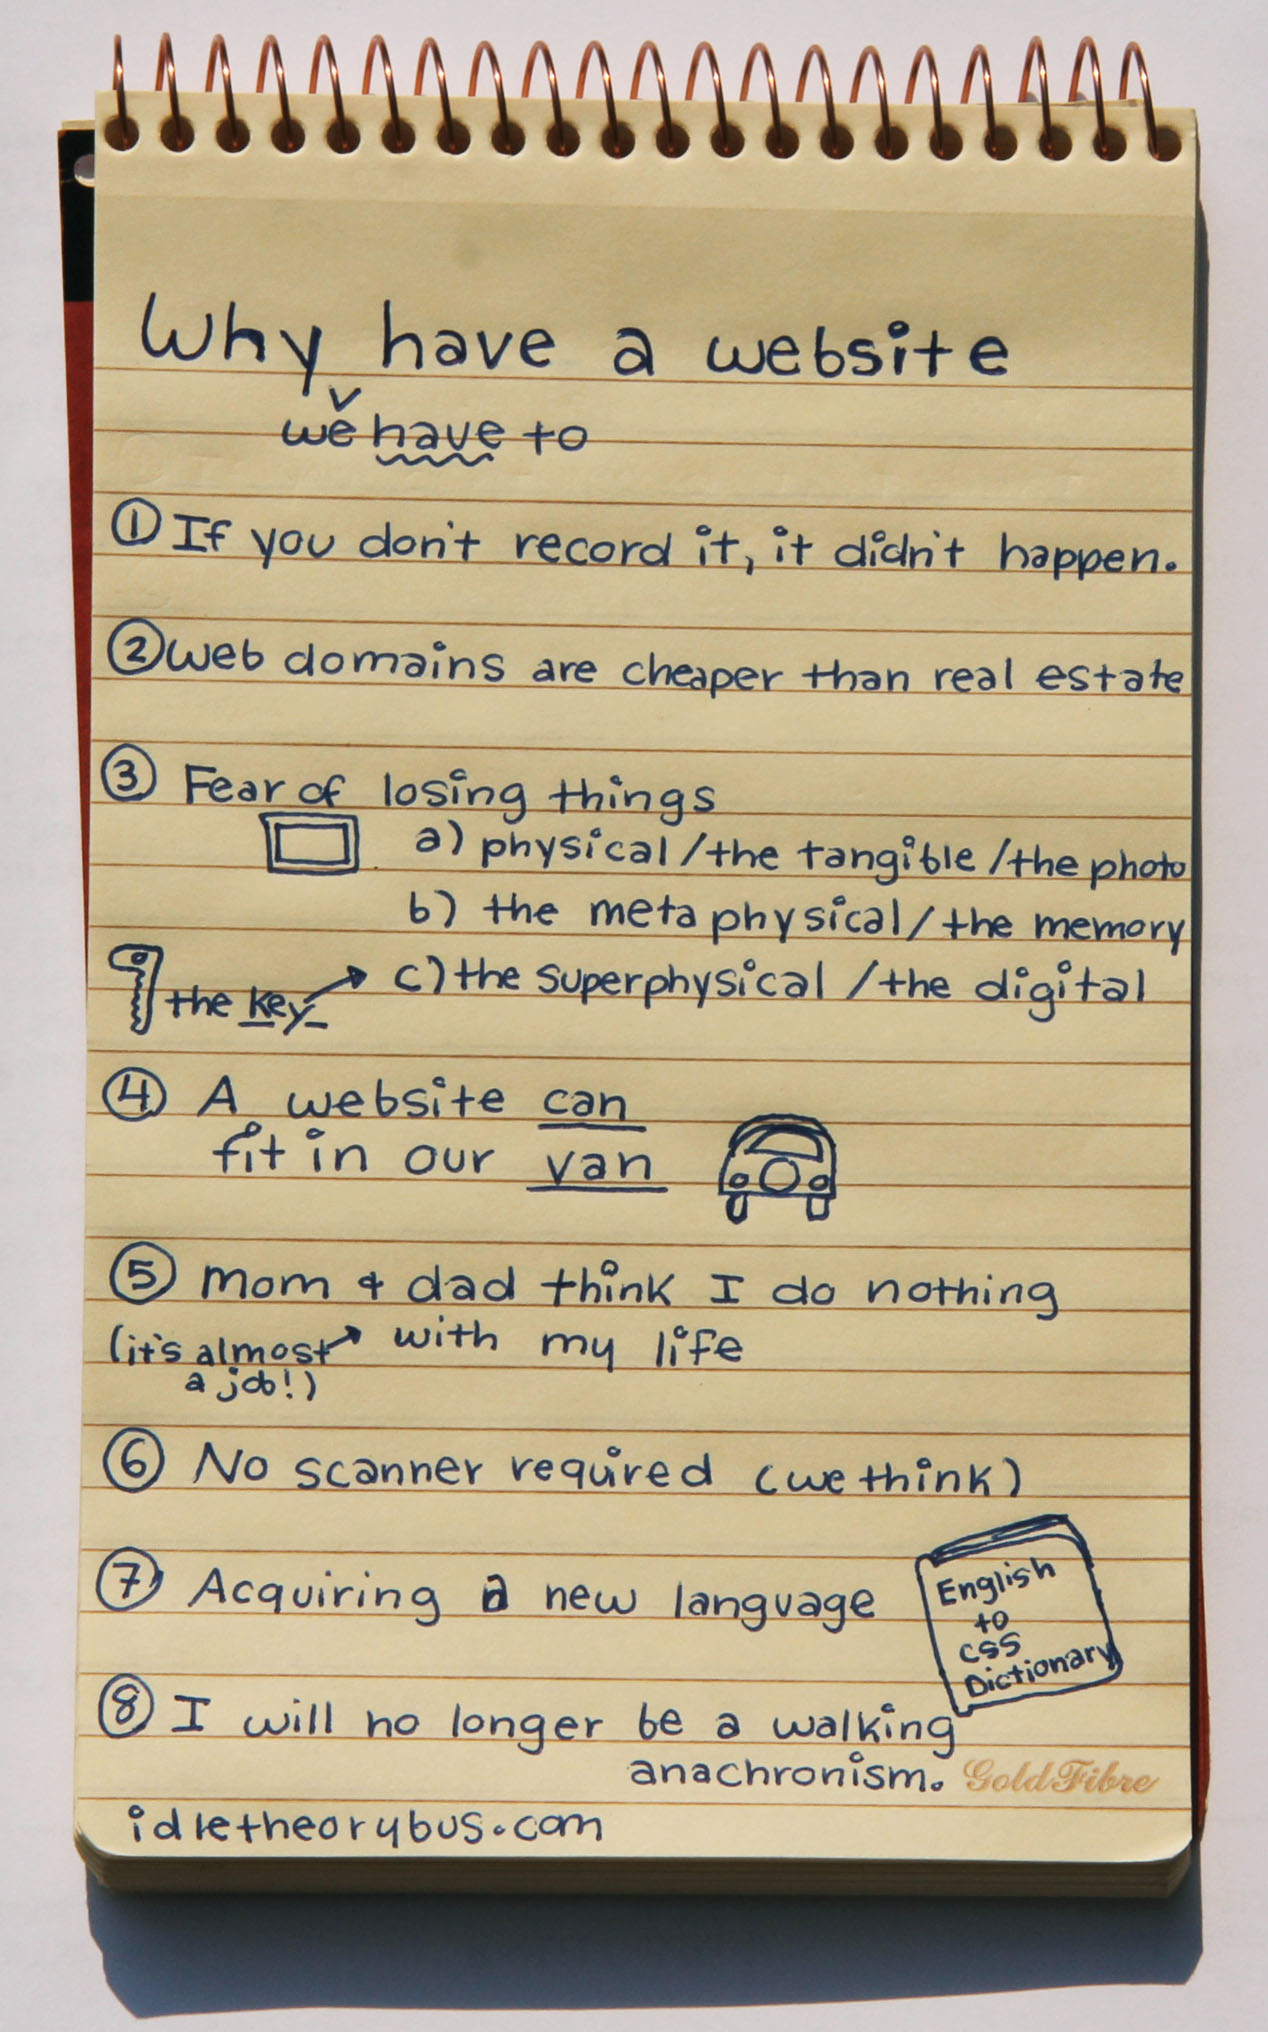 Why have a website
we have to
① If you don't record it, it didn't happen.
② web domains are cheaper than real estate
③ Fear of losing things
a) physical/the tangible/the photo
b) the metaphysical/the memory
c) the superphysical/the digital
the key
④ A website can
fit in our van
⑤ mom & dad think I do nothing
with my life
(it's almost
a job!)
⑥ No scanner required (we think)
⑦ Acquiring a new language
English
to
CSS
Dictionary
⑧ I will no longer be a walking
anachronism.
Gold Fibre
idletheorybus.com